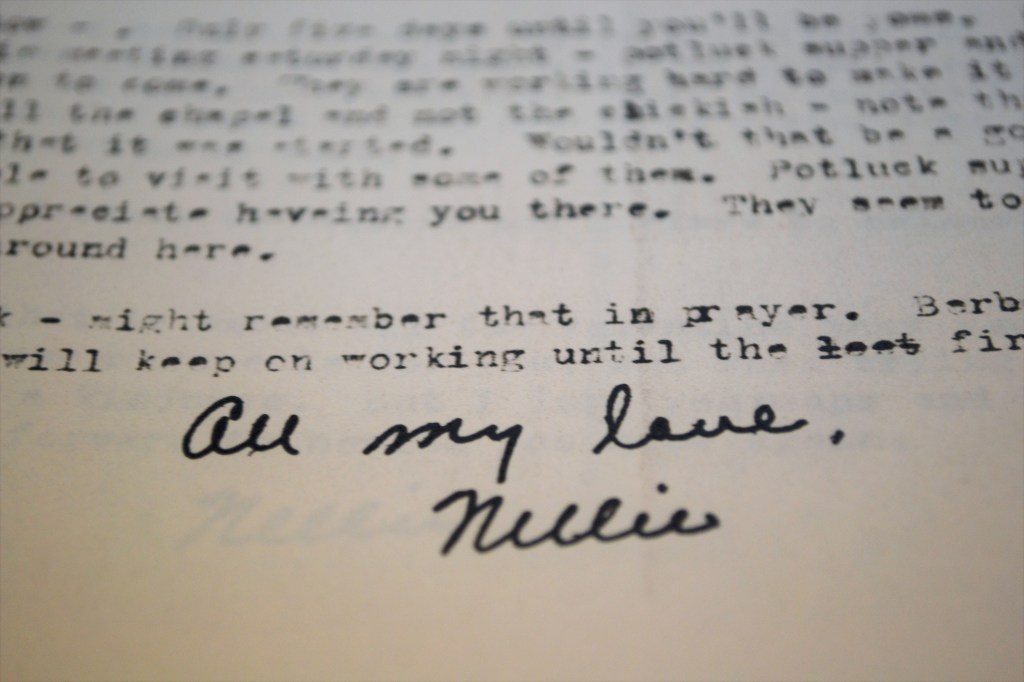 Only five days until you'll be
meeting saturday night - potluck supper and
to come. They are working hard to make it
the chapel and not the - note
that it was started. Wouldn't that be a
to visit with some of them. Potluck
having you there. They seem to
round here.
- might remember that in prayer. Barb
will keep on working until the fir
All my love,
Nellie